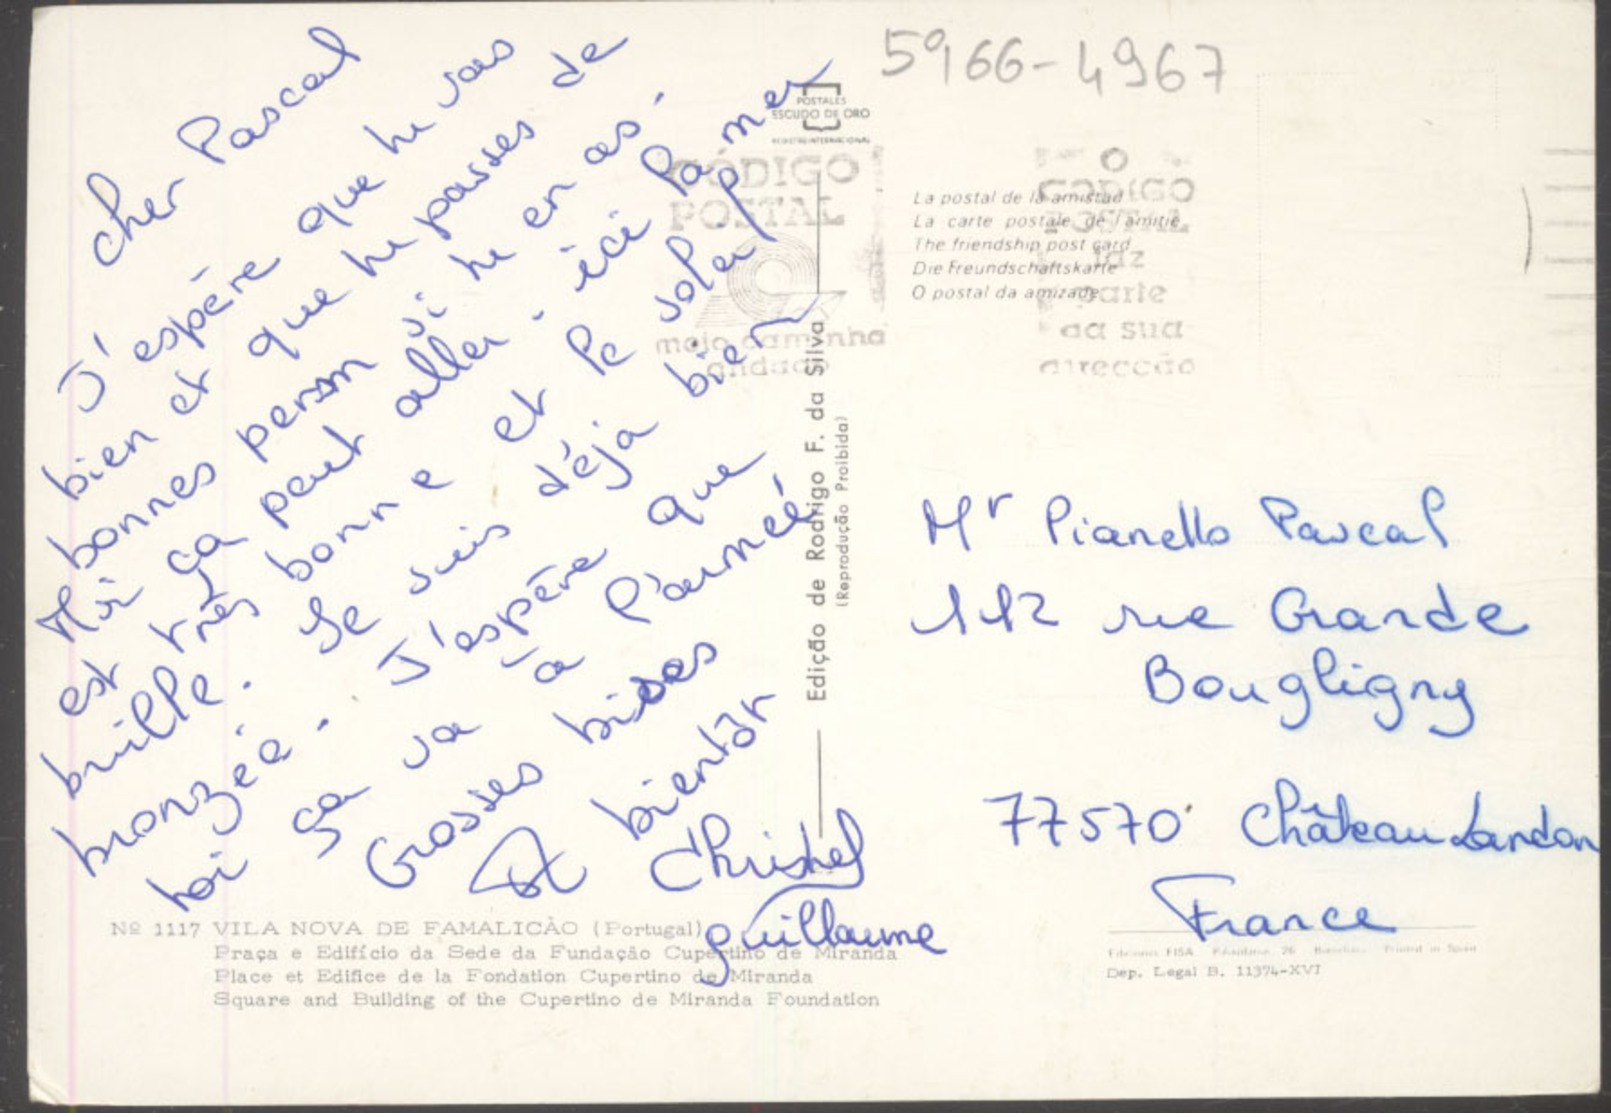 cher Pascal
J'espère que tu vas
bien et que tu passes de
bonnes perm si tu en as.
Moi ça peut aller. ici la mer
est très bonne et le soleil
brille. Je suis déjà bien
bronzée. J'espère que
toi ça va à l'armée
Grosses bises
A bientôt
Christel
guillaume
5966-4967
POSTALES
ESCUDO DE ORO
CÓDIGO
POSTAL
meio caminho
andado
O
CÓDIGO
POSTAL
faz
parte
da sua
direcção
La postal de la amistad
La carte postale de l'amitié
The friendship post card
Die Freundschaftskarte
O postal da amizade
Edição de Rodrigo F. da Silva
(Reprodução Proibida)
Mr Pianello Pascal
112 rue Grande
Bougligny
77570 Château Landon
France
Nº 1117 VILA NOVA DE FAMALICÃO (Portugal)
Praça e Edifício da Sede da Fundação Cupertino de Miranda
Place et Edifice de la Fondation Cupertino de Miranda
Square and Building of the Cupertino de Miranda Foundation
Ediciones FISA Printed in Spain
Dep. Legal B. 11374-XVI